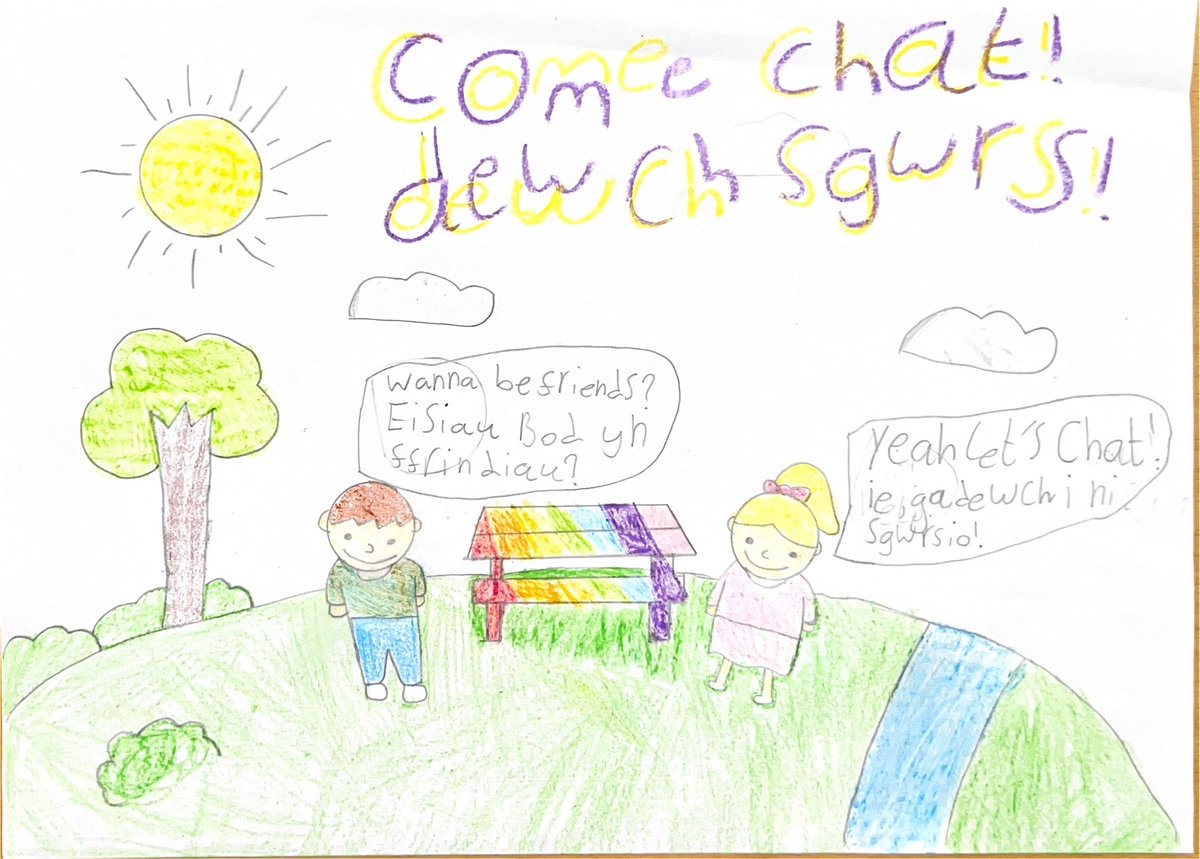 Comee chat!
dewch sgwrs!
wanna be friends?
Eisiau Bod yn
ffrindiau?
Yeah Let's Chat!
ie, gadewch i ni
Sgwrsio!